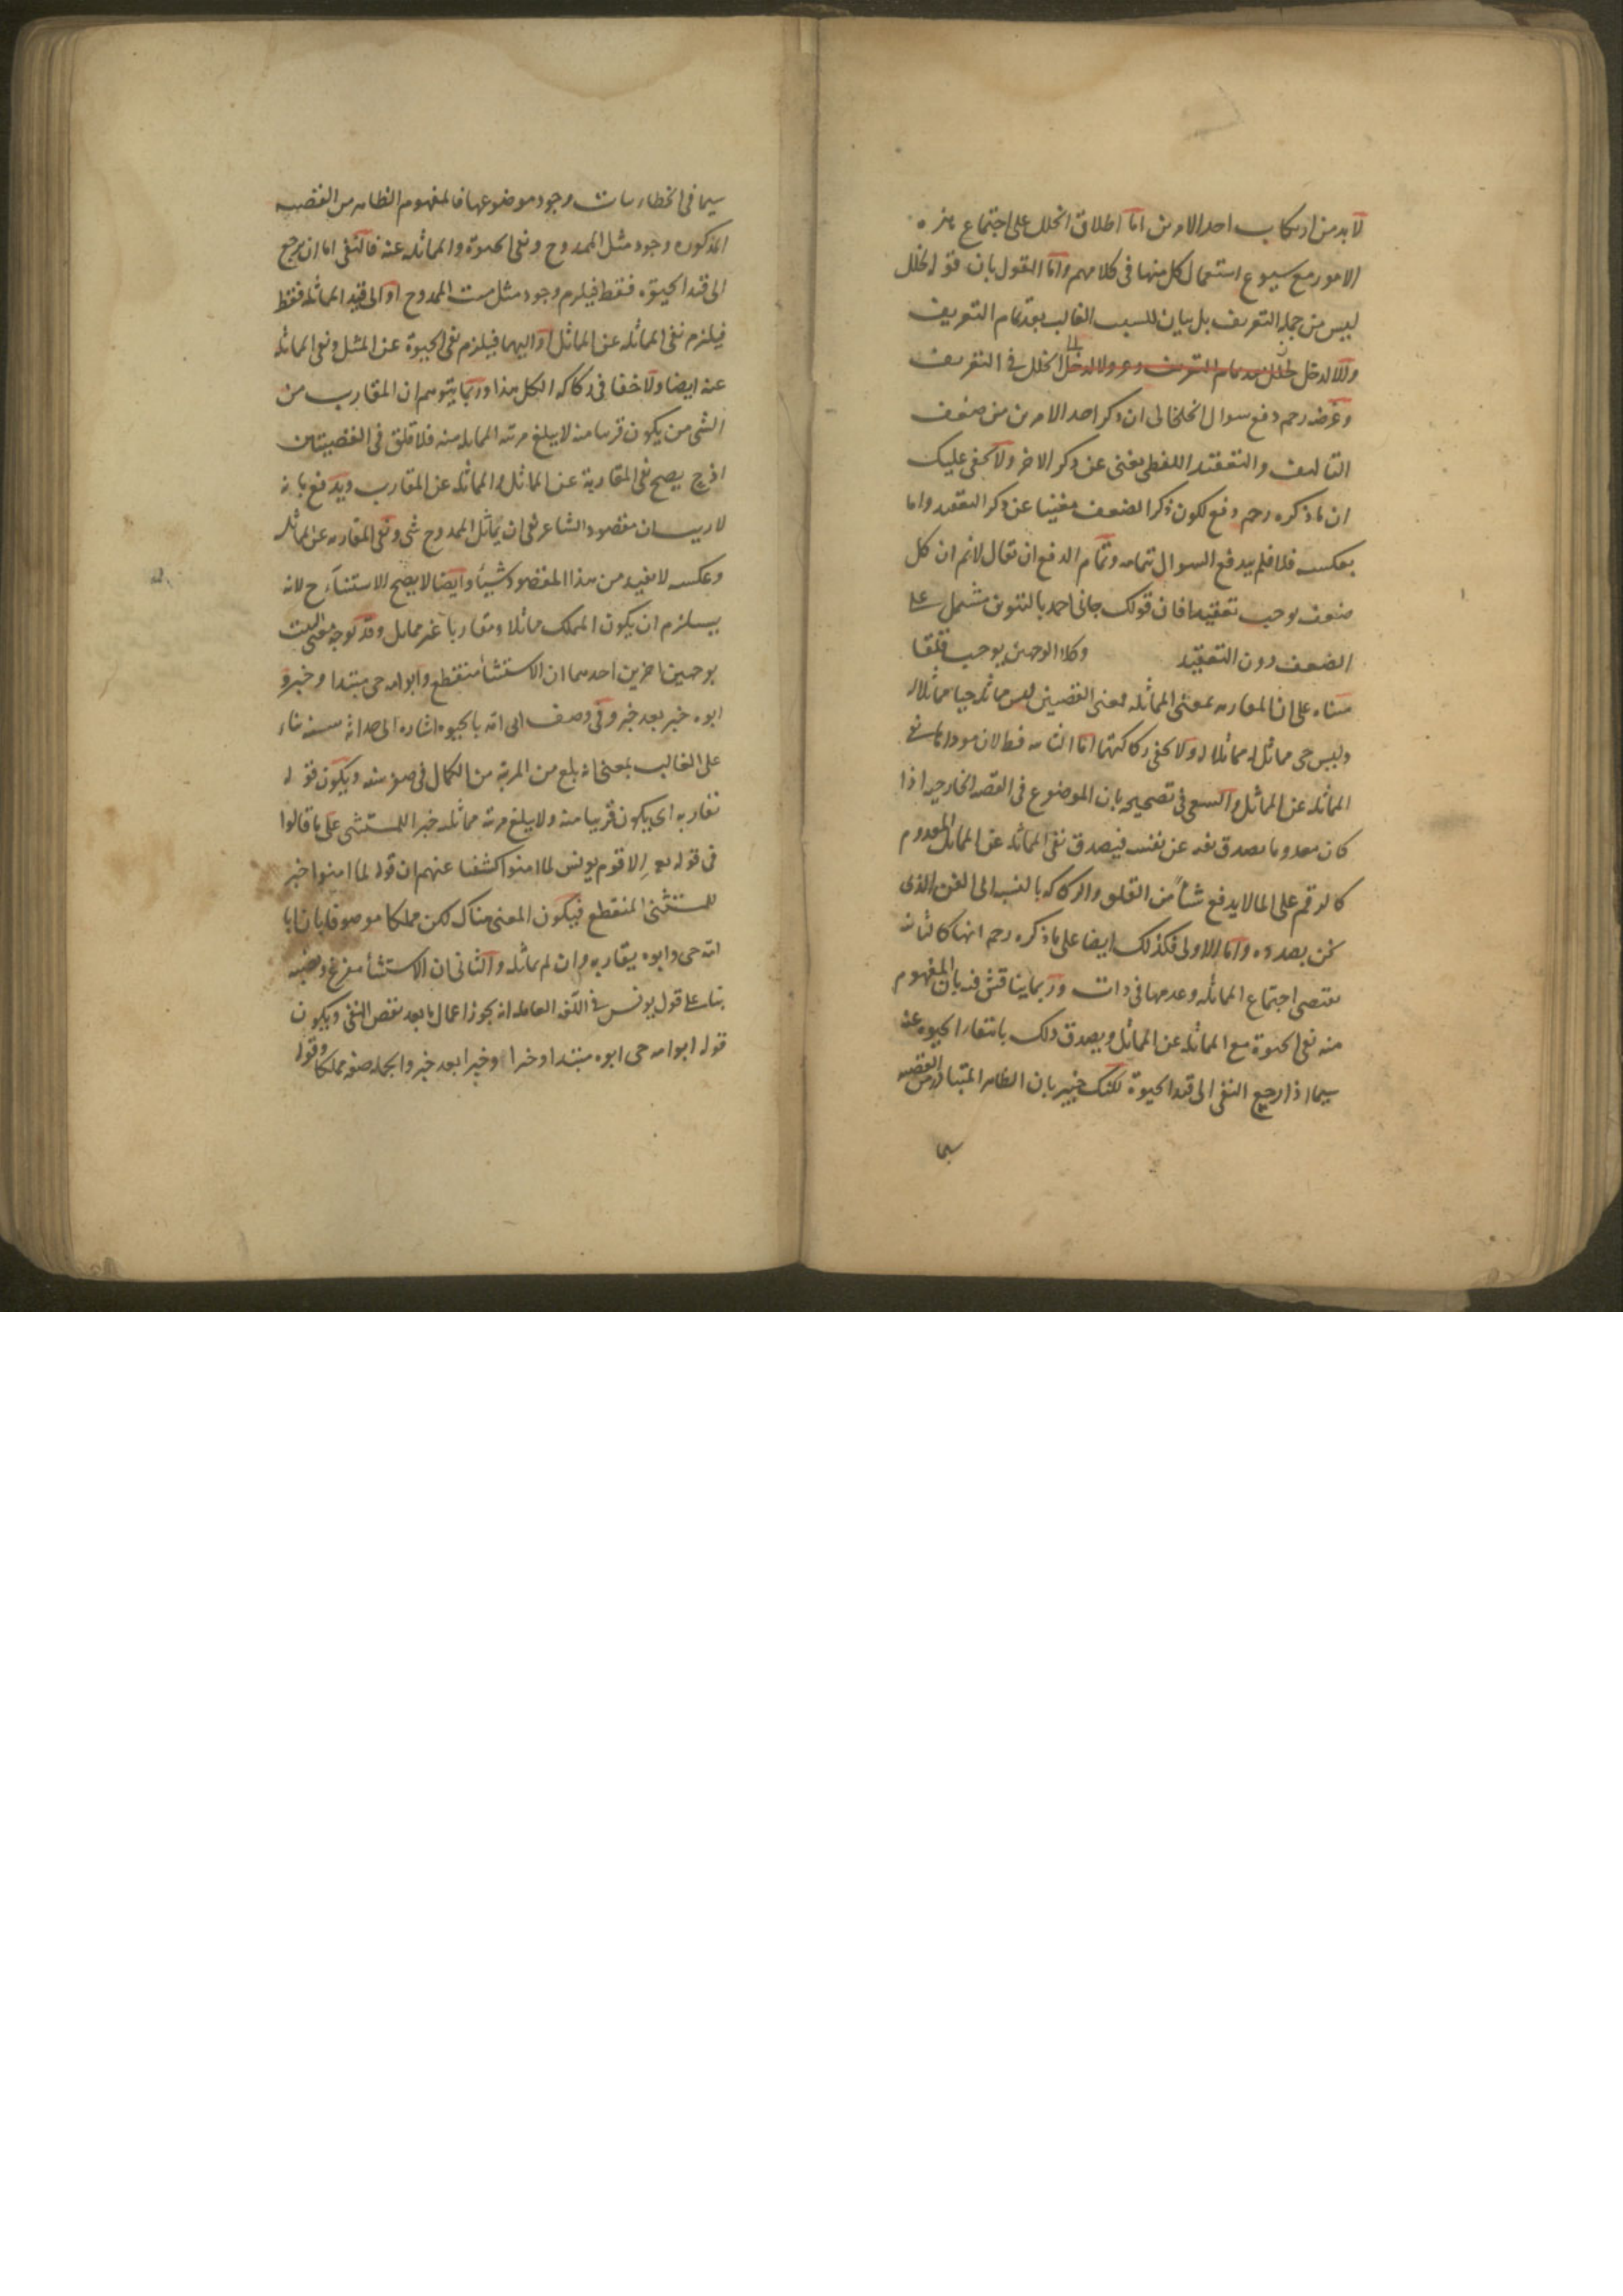 لا بد من ارتكاب احد الامرين اما اطلاق الخلل على اجتماع هذه
الامور مع شيوع استعمال كل منها فى كلامهم واما القول بان قوله الخلل
ليس من جملة التعريف بل بيان للسبب الغالب بعد تمام التعريف
والا لدخل الخلل فى التعريف
وغرضه رحمه دفع سوال الخلخالى ان ذكر احد الامرين من ضعف
التاليف والتعقيد اللفظى يغنى عن ذكر الاخر ولا يخفى عليك
ان ما ذكره رحمه دفع لكون ذكر الضعف مغنيا عن ذكر التعقيد واما
بعكسه فلا فلم يندفع السوال بتمامه وتمام الدفع ان يقال لانم ان كل
ضعف يوجب تعقيدا فان قولك جانى احمد بالتنوين مشتمل على
الضعف دون التعقيد وكلا الوجهين يوجب قلقا
مبناه على ان المقاربه بمعنى المماثله فمعنى القضيتين ليس مماثله حيا مماثلا له
وليس حى مماثل له مماثلا له ولا يخفى ركاكتهما اما الثانيه فط لان موداها نفى
المماثله عن المماثل والسعى فى تصحيحه بان الموضوع فى القضيه الخارجيه اذا
كان معدوما يصدق نفيه عن نفسه فيصدق نفى المماثله عن المماثل المعدوم
كالرقم على الما لا يدفع شيأ من القلق والركاكه بالنسبه الى الفن الذى
نحن بصدده واما الاولى فكذلك ايضا على ما ذكره رحمه انها كالثانيه
يقتضى اجتماع المماثله وعدمها فى ذات وربما يناقش فيه بان المفهوم
منه نفى الحيوة مع المماثله عن المماثل ويصدق ذلك بانتفاء الحيوه عنه
سيما اذا رجع النفى الى قيد الحيوة لكنك خبير بان الظاهر المتبادر من القضيه
سيما
سيما فى الخطابيات وجود موضوعها فالمفهوم الظاهر من القضيه
المذكوره وجود مثل الممدوح ونفى الحيوة والمماثله عنه فالنفى اما ان يرجع
الى قيد الحيوة فقط فيلزم وجود مثل ميت الممدوح او الى قيد المماثله فقط
فيلزم نفى المماثله عن المماثل او اليهما فيلزم نفى الحيوة عن المثل ونفى المماثله
عنه ايضا ولا خفا فى ركاكه الكل هذا وربما يتوهم ان المقارب من
الشى من يكون قريبا منه لا يبلغ مرتبه المماثله منه فلا قلق فى القضيتين
اذ ح يصح نفى المقاربة عن المماثل والمماثله عن المقارب ويدفع بانه
لا ريب ان مقصود الشاعر نفى ان يماثل الممدوح شى ونفى المقاربه عن المماثل
وعكسه لا يفيد من هذا المقصود شيأ وايضا لا يصح الاستثناء ح لانه
يستلزم ان يكون المملك مماثلا ومقاربا غير مماثل وقد يوجه معنى البيت
بوجهين اخرين احدهما ان الاستثنأ منقطع وابو امه حى مبتدا وخبر و
ابوه خبر بعد خبر وفى وصف ابى امه بالحيوه اشاره الى حداثة سنه بناء
على الغالب بمعنى انه بلغ من المرتبة من الكمال فى صغر سنه ويكون قوله
يقاربه اى يكون قريبا منه ولا يبلغ مرتبة مماثلته خبرا للمستثنى على ما قالوا
فى قوله تع الا قوم يونس لما امنوا كشفنا عنهم ان قوله لما امنوا خبر
للمستثنى المنقطع فيكون المعنى هناك لكن مملكا موصوفا بان ابا
امه حى وابوه يقاربه وان لم يماثله والثانى ان الاستثنأ مفرغ ونصبه
بناء على قول يونس فى اللغه العامله انه يجوز اعمال ما بعد نقض النفى ويكون
قوله ابو امه حى ابوه مبتدا وخبرا وخبرا بعد خبر والجمله صفه مملكا وقوله